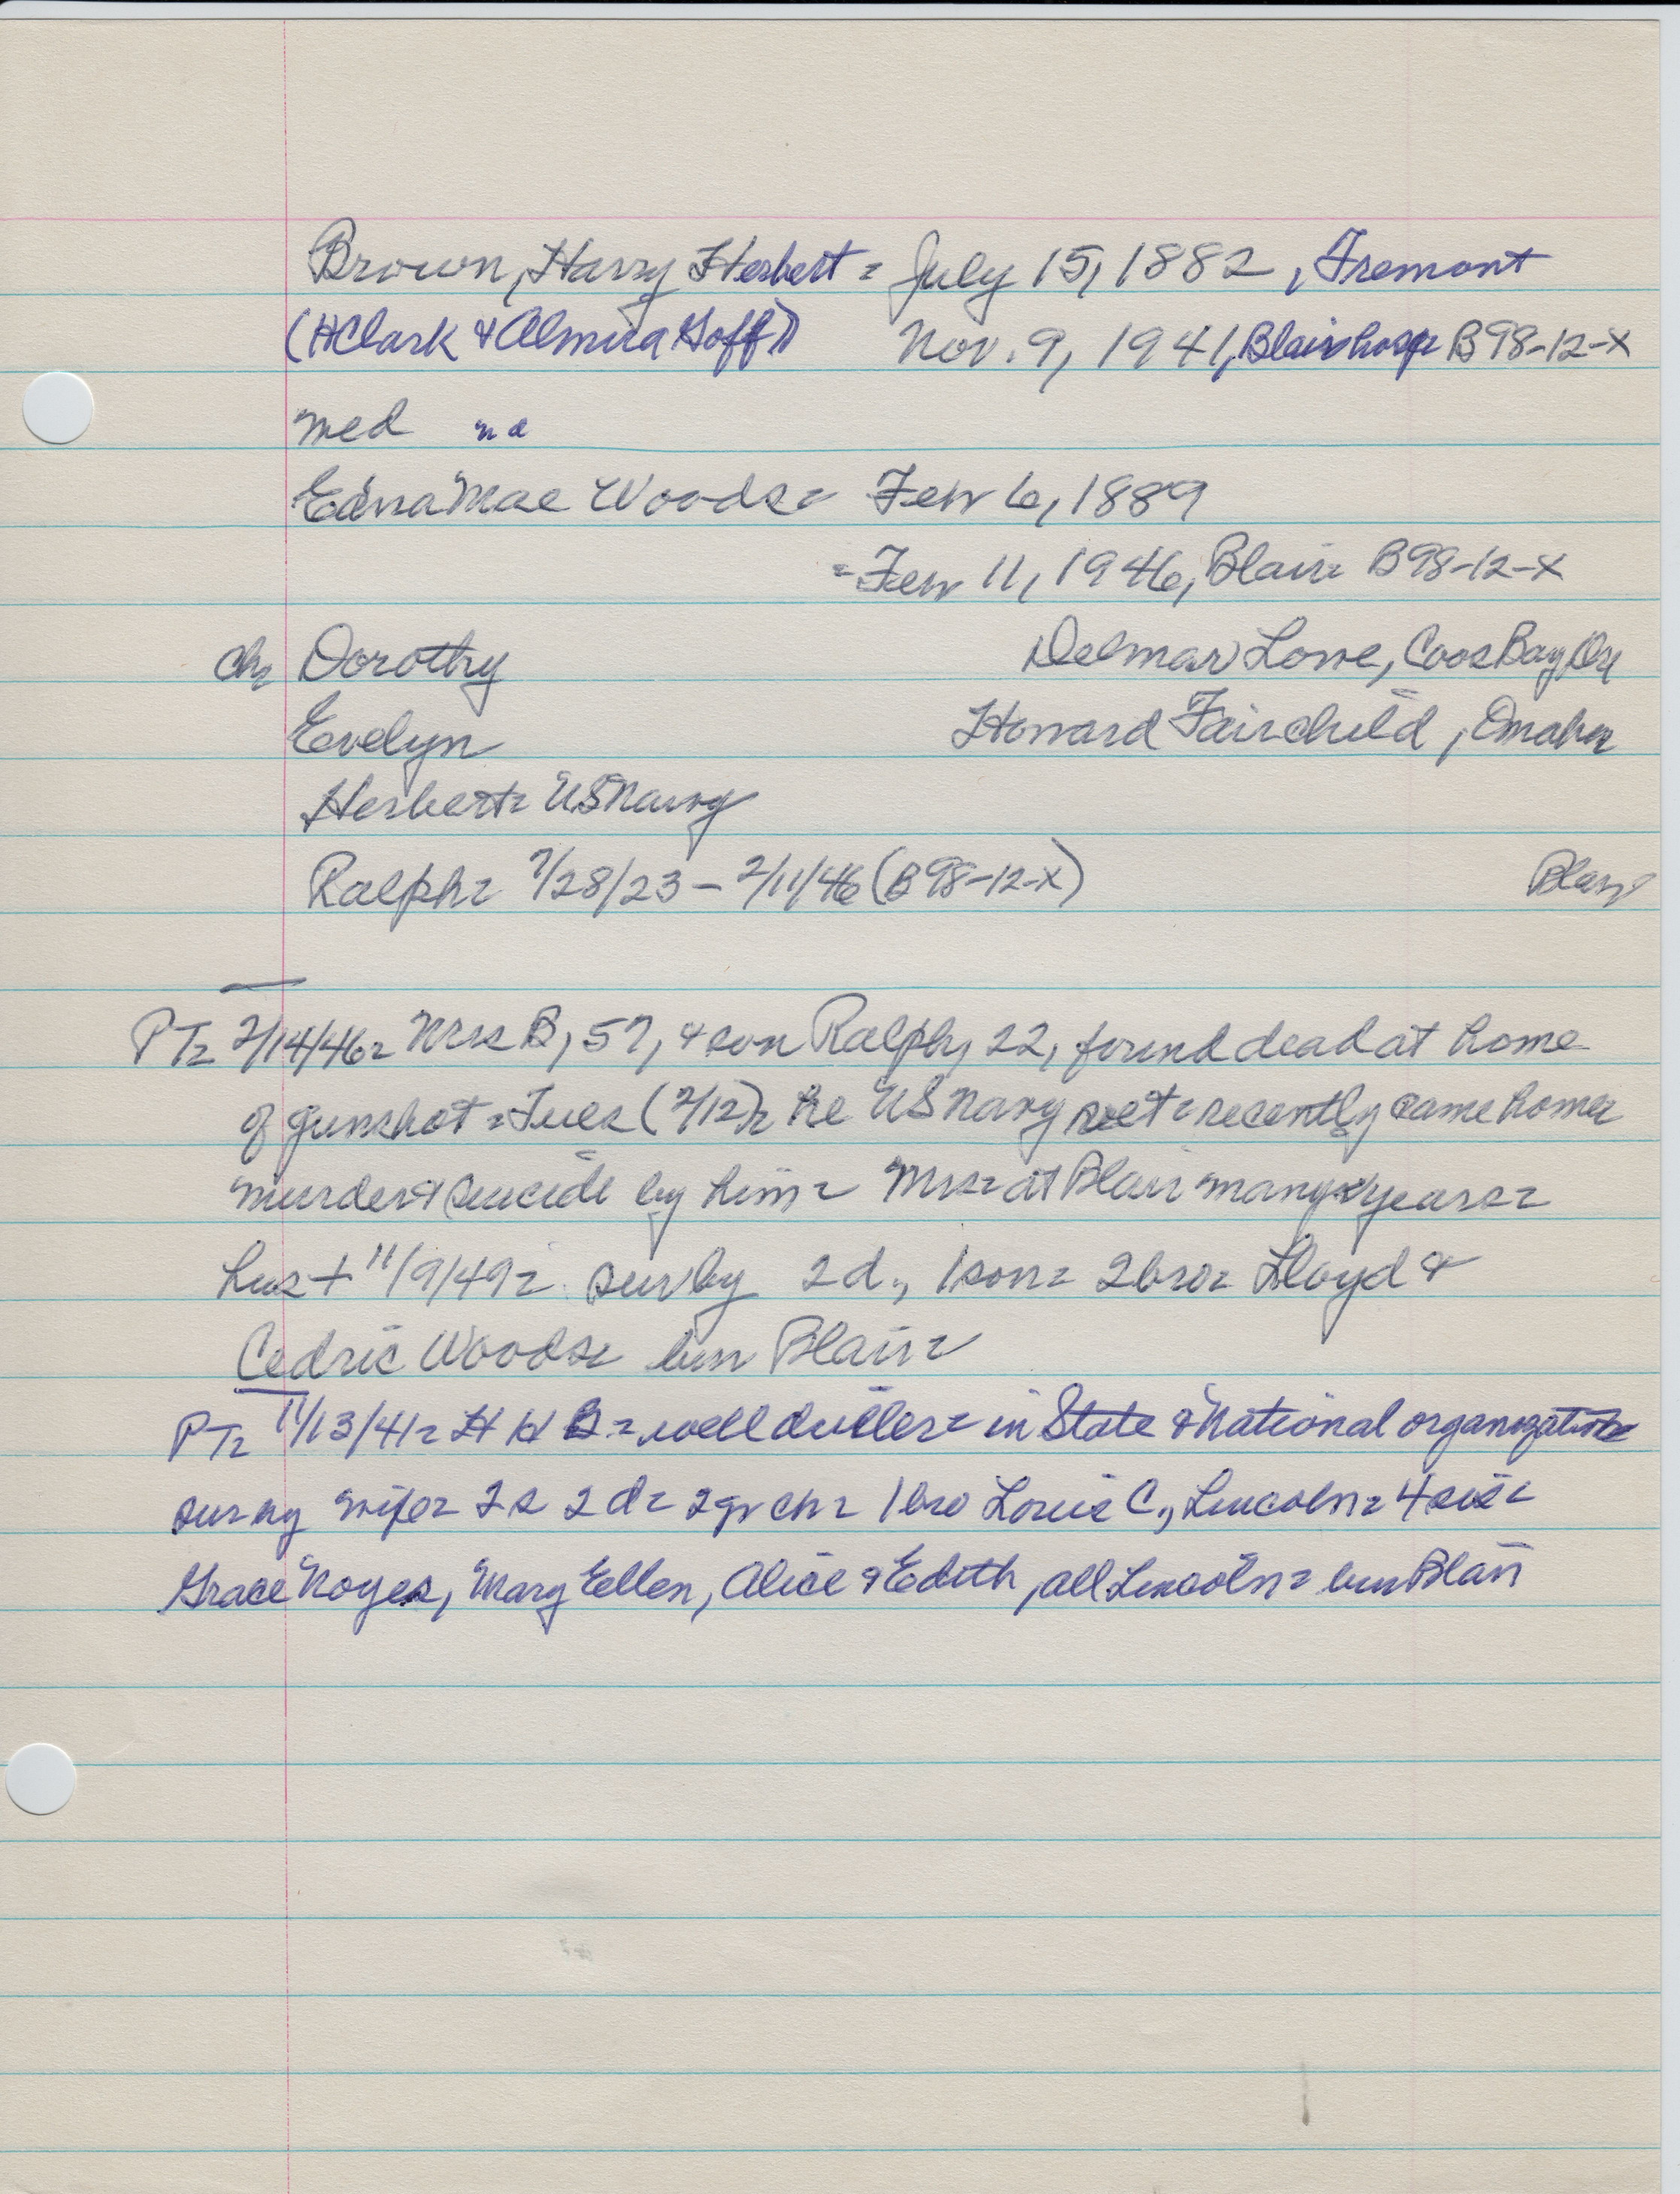 Brown, Harry Herbert = July 15, 1882, Fremont
(H Clark & Almira Goff) Nov. 9, 1941, Blair hosp B98-12-X
med nd
Edna Mae Woods = Feb 6, 1889
= Feb 11, 1946, Blair = B98-12-X
ch = Dorothy Delmar Lowe, Coos Bay Ore
Evelyn Howard Fairchild, Omaha
Herbert = US Navy
Ralph = 7/28/23 - 2/11/46 (B98-12-X) Blair
PT = 2/14/46 = Mrs B, 57, & son Ralph, 22, found dead at home
of gunshot = Tues (2/12) = he US Navy vet = recently came home =
murder & suicide by him = Mrs = at Blair many years =
hus + 11/9/49 = sur by 2 d., 1 son = 2 bro = Lloyd &
Cedric Woods = bur Blair =
PT = 11/13/41 = H H B = well driller = in State & National organizations
sur by wife = 2 s 2 d = 2 gr ch = 1 bro Louie C., Lincoln = 4 sis =
Grace Noyes, Mary Ellen, Alice & Edith, all Lincoln = bur Blair